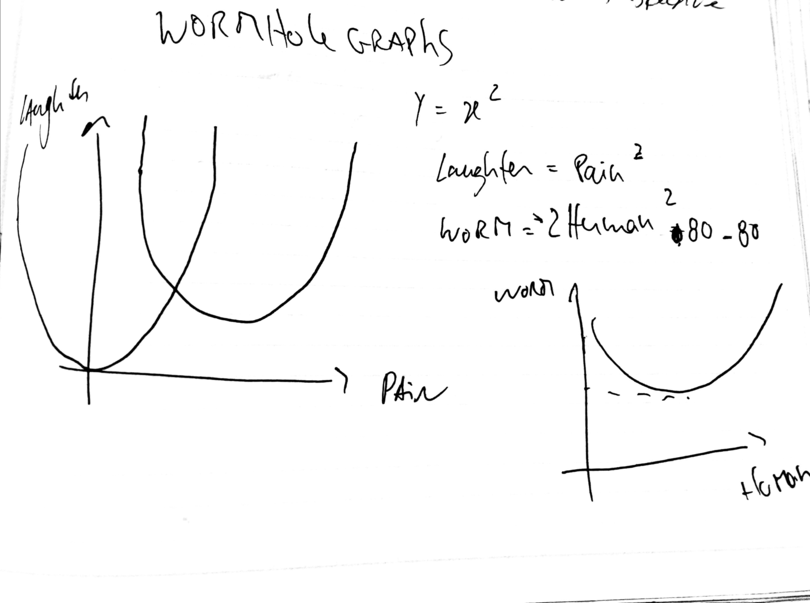 WORMHole GRAPHS
Laughter
Y = x²
Laughter = Pain²
WORM = -2 Human² 80 - 80
WORM
PAiN
Human